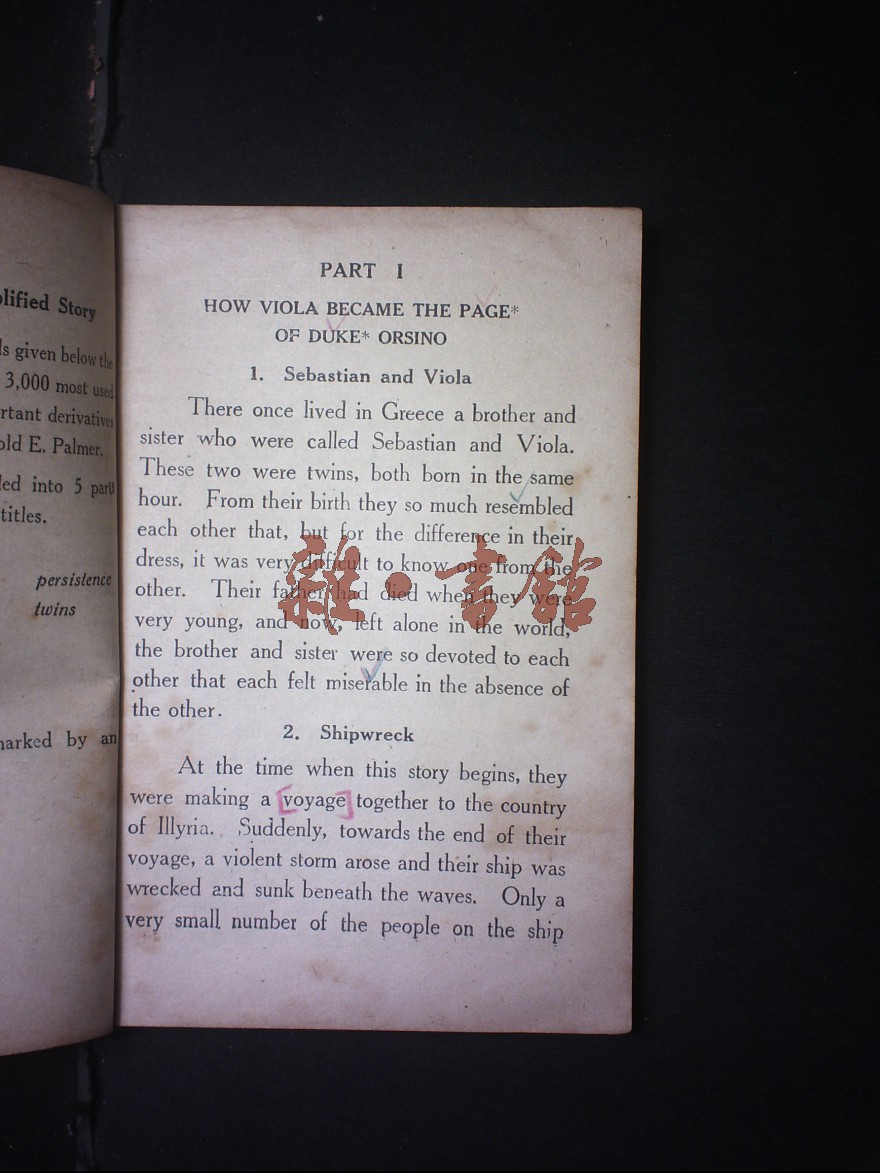 lified Story
ls given below the
3,000 most used
rtant derivatives
old E. Palmer.
led into 5 parts
titles.
persistence
twins
marked by an
PART I
HOW VIOLA BECAME THE PAGE*
OF DUKE* ORSINO
1. Sebastian and Viola
There once lived in Greece a brother and
sister who were called Sebastian and Viola.
These two were twins, both born in the same
hour. From their birth they so much resembled
each other that, but for the difference in their
dress, it was very difficult to know one from the
other. Their father had died when they were
very young, and now, left alone in the world,
the brother and sister were so devoted to each
other that each felt miserable in the absence of
the other.
2. Shipwreck
At the time when this story begins, they
were making a [voyage] together to the country
of Illyria. Suddenly, towards the end of their
voyage, a violent storm arose and their ship was
wrecked and sunk beneath the waves. Only a
very small number of the people on the ship
雜·書館